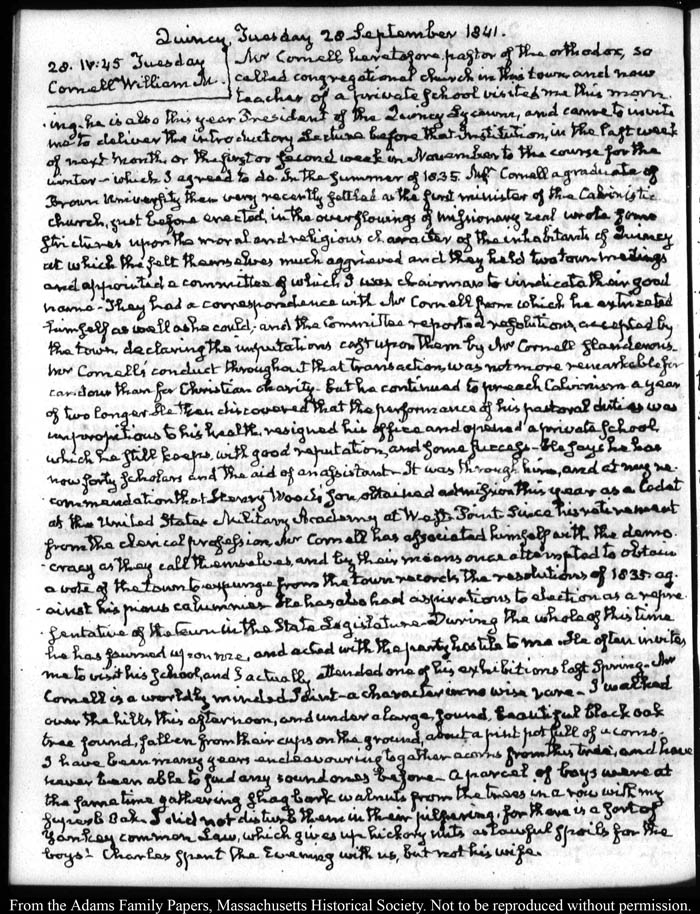 Quincy, Tuesday 28 September 1841.
28. IV:45 Tuesday
Cornell William M.
Mr Cornell heretofore pastor of the orthodox, so
called congregational church in this town, and now
teacher of a private School visited me this morn-
ing. he is also this year President of the Quincy Lyceum, and came to invite
me to deliver the introductory Lecture before that Institution, in the last week
of next Month, or the first or second week in November to the course for the
winter — which I agreed to do. In the summer of 1835. Mr Cornell a graduate of
Brown University then very recently settled as the first minister of the Calvinistic
church, just before erected, in the overflowings of missionary zeal wrote some
strictures upon the moral and religious character of the inhabitants of Quincy
at which the felt themselves much aggrieved and they held two town meetings
and appointed a committee of which I was chairman to vindicate their good
name. They had a correspondence with Mr Cornell from which he extricated
himself as well as he could, and the Committee reported resolutions, accepted by
the town, declaring the imputations cast upon them by Mr Cornell slanderous.
Mr Cornell's conduct throughout that transaction, was not more remarkable for
candour than for Christian charity. But he continued to preach Calvinism a year
or two longer. He then discovered that the performance of his pastoral duties was
unpropitious to his health, resigned his office and opened a private School
which he still keeps, with good reputation, and some success — He says he has
now forty scholars and the aid of an assistant — It was through him, and at my re-
commendation that Wood's son, obtained admission this year as a Cadet
at the United States Military Academy at West-Point. Since his retirement
from the clerical profession, Mr Cornell has associated himself with the demo-
cracy as they call themselves, and by their means once attempted to obtain
a vote of the town to expunge from the town records the resolutions of 1835. ag-
ainst his pious calumnies. He has also had aspirations to election as a repre-
sentative of the town in the State Legislature. During the whole of this time
he has fawned upon me, and acted with the party hostile to me. He often invites
me to visit his School, and I actually attended one of his exhibitions last Spring — Mr
Cornell is a worldly minded Saint — a character in no wise rare — I walked
over the hills this afternoon, and under a large, sound, beautiful black oak
tree found, fallen from their cups on the ground, about a pint pot full of acorns.
I have been many years endeavouring to gather acorns from this tree, and have
never been able to find any sound ones before — A parcel of boys were at
the same time gathering shagbark walnuts from the trees in a row with my
superb Oak. I did not disturb them in their pilfering, for there is a sort of
Yankey common Law, which gives up hickory nuts as lawful spoils for the
boys. Charles spent the Evening with us, but not his wife.
From the Adams Family Papers, Massachusetts Historical Society. Not to be reproduced without permission.